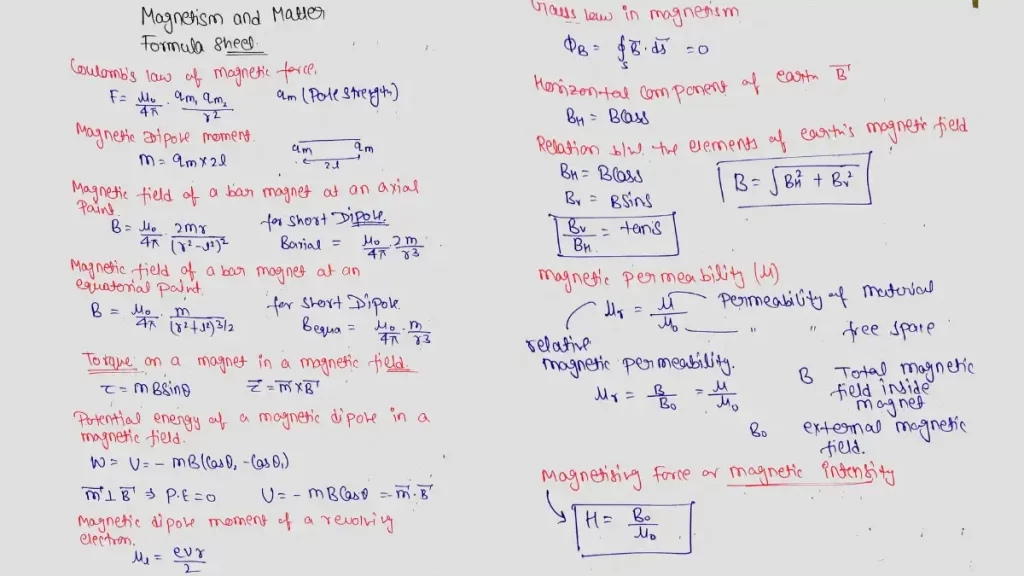 Magnetism and Matter
Formula Sheet.
Coulomb's law of magnetic force.
F = μ₀/4π · qm₁ qm₂/r²    qm (Pole Strength)
Magnetic Dipole moment.
m = qm × 2l    qm qm 2l
Magnetic field of a bar magnet at an axial
Point.
B = μ₀/4π · 2mr/(r²-l²)²    for short Dipole.
Baxial = μ₀/4π · 2m/r3
Magnetic field of a bar magnet at an
equatorial point.
B = μ₀/4π · m/(r²+l²)3/2    for short Dipole
Bequa = μ₀/4π · m/r3
Torque on a magnet in a magnetic field.
τ = mBsinθ    τ⃗ = m⃗ × B⃗
Potential energy of a magnetic dipole in a
magnetic field.
W = U = - mB(Cosθ, - Cosθ,)
m⃗ ⊥ B⃗ ⇒ P.E = 0    U = - mBCosθ = m⃗ · B⃗
Magnetic dipole moment of a revolving
electron.
μl = evr/2
Gauss law in magnetism
ΦB = ∮s B⃗ · ds⃗ = 0
Horizontal component of earth B⃗
BH = Bcosδ
Relation b/w. the elements of earth's magnetic field
BH = Bcosδ
Bv = Bsinδ    B = √BH² + Bv²
Bv/BH = tanδ
magnetic permeability (μ)
μr = μ/μ₀    Permeability of material
" " free space
relative
magnetic permeability.
μr = B/B₀ = μ/μ₀    B Total magnetic
field inside
magnet
B₀ external magnetic
field.
Magnetising force or magnetic intensity
H = B₀/μ₀